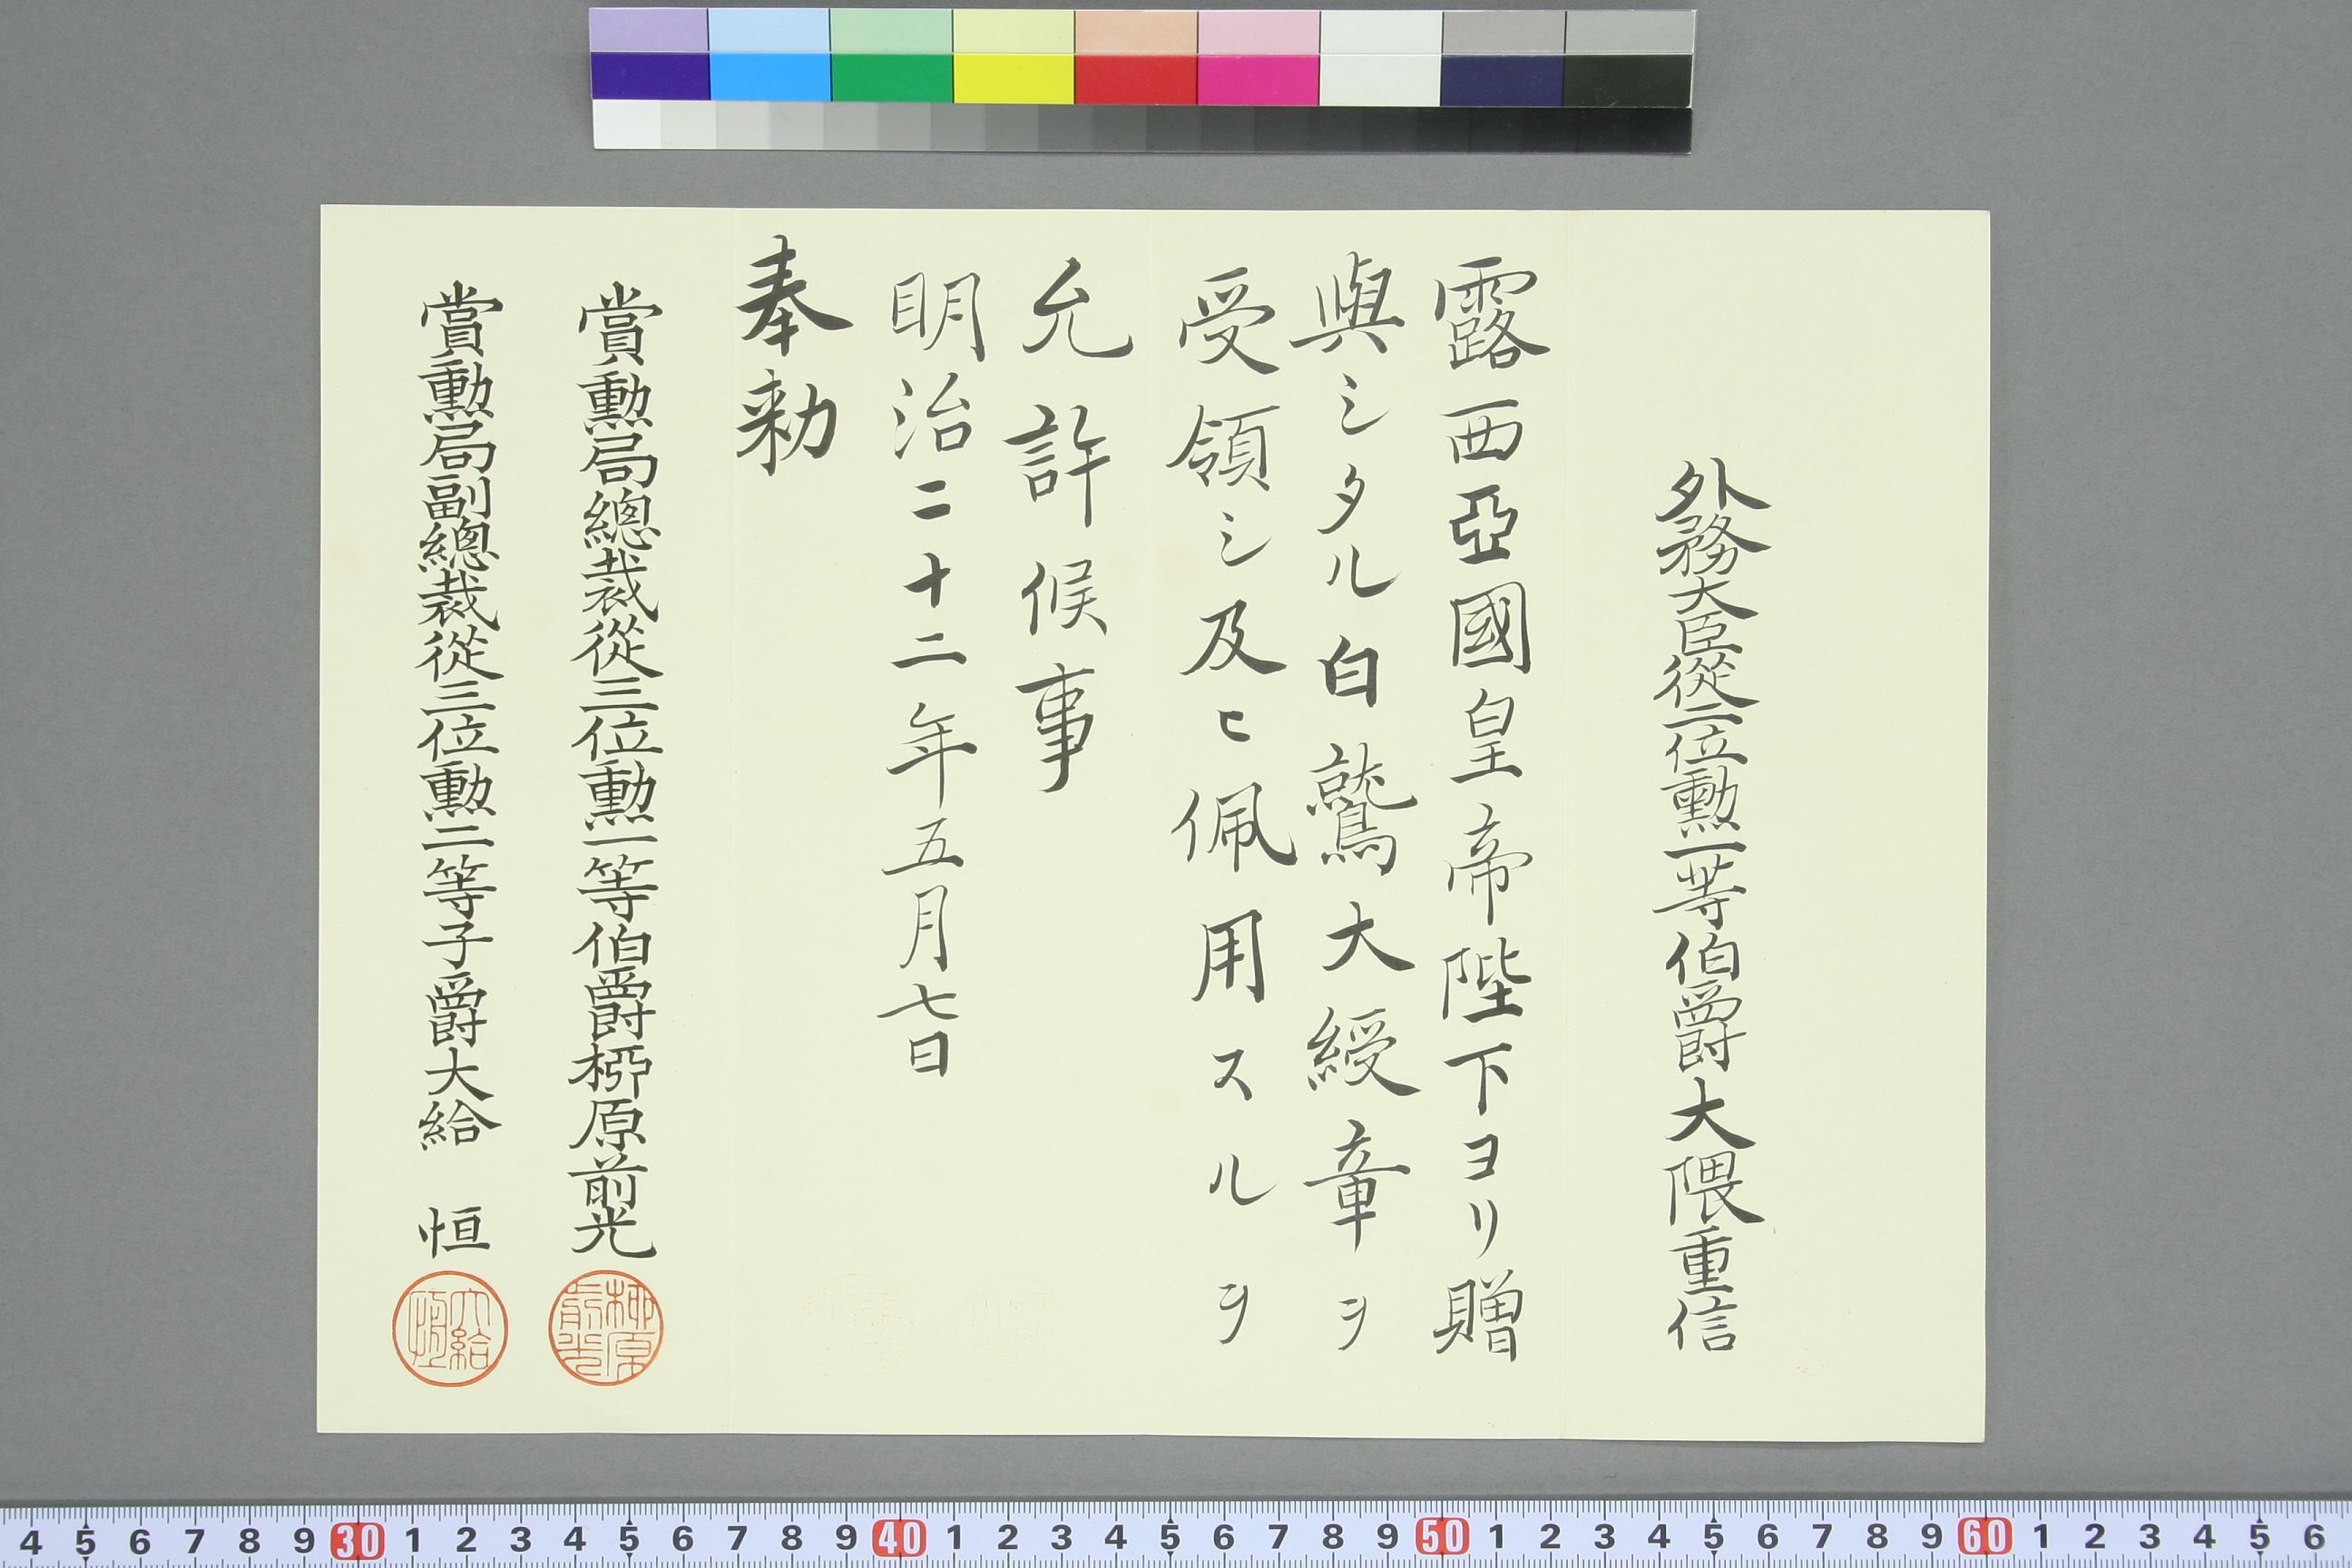 外務大臣從二位勲一等伯爵大隈重信
露西亞國皇帝陛下ヨリ贈
與シタル白鷲大綬章ヲ
受領シ及ヒ佩用スルヲ
允許候事
明治二十二年五月七日
奉勅
賞勲局總裁從三位勲一等伯爵柳原前光
柳原前光
賞勲局副總裁從三位勲二等子爵大給 恒
大給恒
4 5 6 7 8 9 30 1 2 3 4 5 6 7 8 9 40 1 2 3 4 5 6 7 8 9 50 1 2 3 4 5 6 7 8 9 60 1 2 3 4 5 6